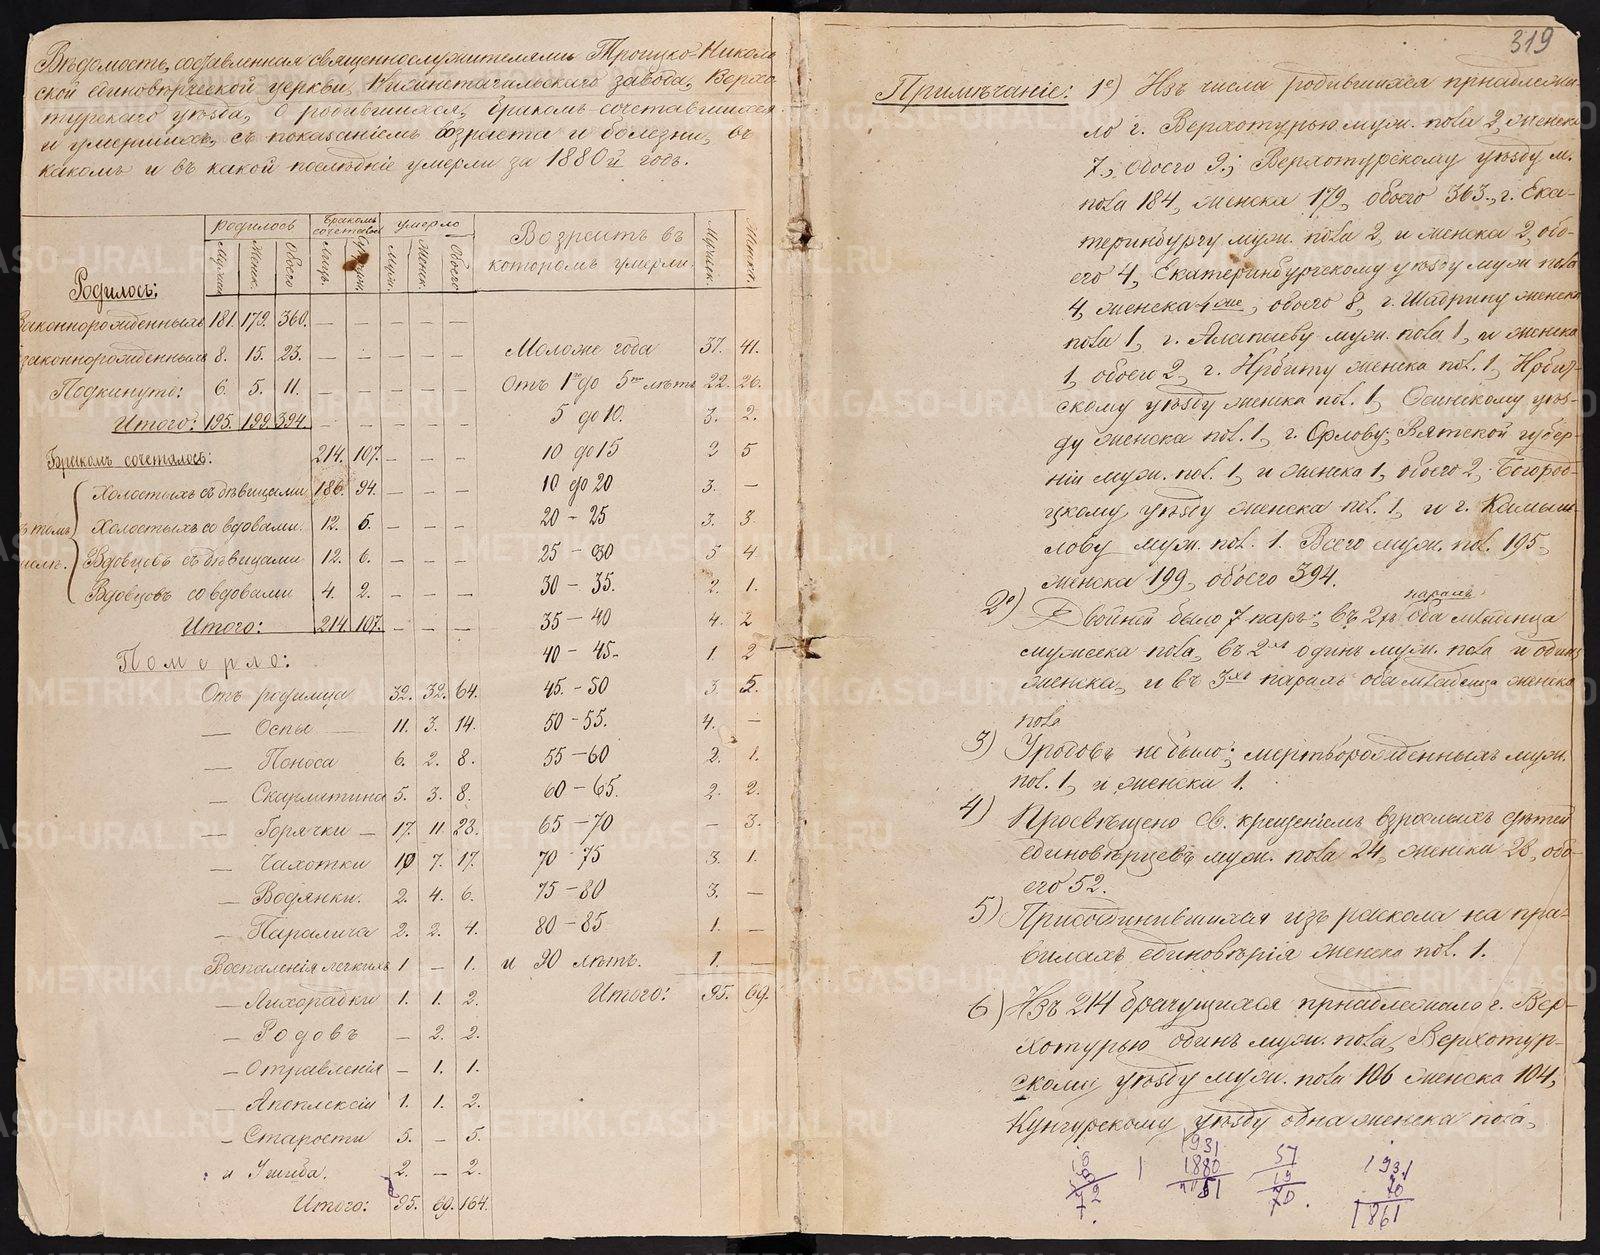 Вѣдомость, составленная священнослужителями Троицко-Никола
ской единовѣрческой церкви, Нижнетагильскаго завода, Верхо
турскаго уѣзда, о родившихся, бракомъ сочетавшихся
и умершихъ, съ показаніемъ возраста и болезни, въ
какомъ и въ какой послѣдніе умерли за 1880й годъ.
родилось бракомъ сочеталось умерло Возрастъ въ которомъ умерли.
Мужск. Женск. Обоего Лицъ. Мужск. Женск. Обоего Мужск. Женск.
Родилось:
Законнорожденныхъ 181. 179. 360. — — — — —
законнорожденныхъ 8. 15. 23. — — — — — Моложе года 37. 41.
Подкинуто: 6. 5. 11. — — — — — Отъ 1го до 5ти лѣтъ 22. 26.
Итого: 195. 199. 394. — — — — — 5 до 10. 3. 2.
Бракомъ сочеталось: 214. 107. — — — 10 до 15 2 5
Холостыхъ съ дѣвицами 186. 94. — — — 10 до 20 3. —
въ томъ Холостыхъ со вдовами. 12. 5. — — — 20 – 25 3. 3
числѣ. Вдовцовъ съ дѣвицами 12. 6. — — — 25 – 30 5 4
Вдовцовъ со вдовами 4. 2. — — — 30 – 35. 2. 1.
Итого: 214. 107. — — — 35 – 40 4. 2
Померло: 40 – 45. 1. 2
Отъ родимца 32. 32. 64. 45. – 50 3. 5.
— Оспы 11. 3. 14. 50 – 55. 4. —
— Поноса 6. 2. 8. 55 – 60 2. 1.
— Скарлатина 5. 3. 8. 60 – 65. 2. 2.
— Горячки — 17. 11. 28. 65 – 70 — 3.
— Чахотки 10 7. 17. 70 75 3. 1.
— Водянки. 2. 4. 6. 75 – 80 3. —
— Паралича 2. 2. 4. 80 – 85 1. —
Воспаленія легкихъ 1 — 1. и 90 лѣтъ. 1. —
— Лихорадки 1. 1. 2. Итого: 95. 69.
— Родовъ — 2. 2.
— Отравленія — 1. 1.
— Апоплексіи 1. 1. 2.
— Старости 5. — 5.
и Ушиба. 2. — 2.
Итого: 95. 69. 164.
319
Примѣчаніе: 1е) Изъ числа родившихся принадлежа-
ло г. Верхотурью муж. пола 2, женска
7, обоего 9.; Верхотурскому уѣзду м.
пола 184, женска 179, обоего 363., г. Ека-
теринбургу муж. пола 2, и женска 2, обо-
его 4, Екатеринбургскому уѣзду муж пола
4, женска 4 же, обоего 8, г. Шадрину женск
пола 1, г. Алапаеву муж. пола 1, и женска
1, обоего 2, г. Ирбиту женска пол. 1, Ирбит-
скому уѣзду женска пол. 1, Осинскому уѣз-
ду женска пол. 1, г. Орлову, Вятской губер-
ніи муж. пол. 1, и женска 1, обоего 2, Богород-
цкому уѣзду женска пол. 1, и г. Камыш-
лову муж. пол. 1. Всего муж. пол. 195,
женска 199, обоего 394.
2е) Двойней было 7 паръ; въ 2хъ парахъ оба младенца
мужеска пола, въ 2хъ одинъ муж. пола и одинъ
женска, и въ 3хъ парахъ оба младенца женска
пола
3) Уродовъ не было; мертворожденныхъ муж.
пол. 1, и женска 1.
4) Просвѣщено св. крещеніемъ взрослыхъ дѣтей
единовѣрцевъ муж. пола 24, женска 28, обо-
его 52.
5) Присоединившихся изъ раскола на пра-
вилахъ единовѣрія женска пол. 1.
6) Изъ 214 брачущихся принадлежало г. Вер-
хотурью одинъ муж. пола, Верхотур-
скому уѣзду муж. пола 106 женска 104,
Кунгурскому уѣзду одна женска пола,
1931 57 1931
1880 13 70
51 70. 1861